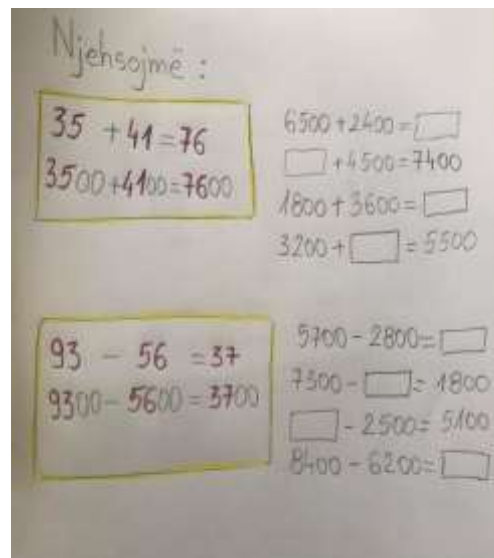 Njehsojmë :
35 + 41 = 76
3500 + 4100 = 7600
6500 + 2400 = 
 + 4500 = 7400
1800 + 3600 = 
3200 +  = 5500
93 - 56 = 37
9300 - 5600 = 3700
5700 - 2800 = 
7300 -  = 1800
 - 2500 = 5100
8400 - 6200 =